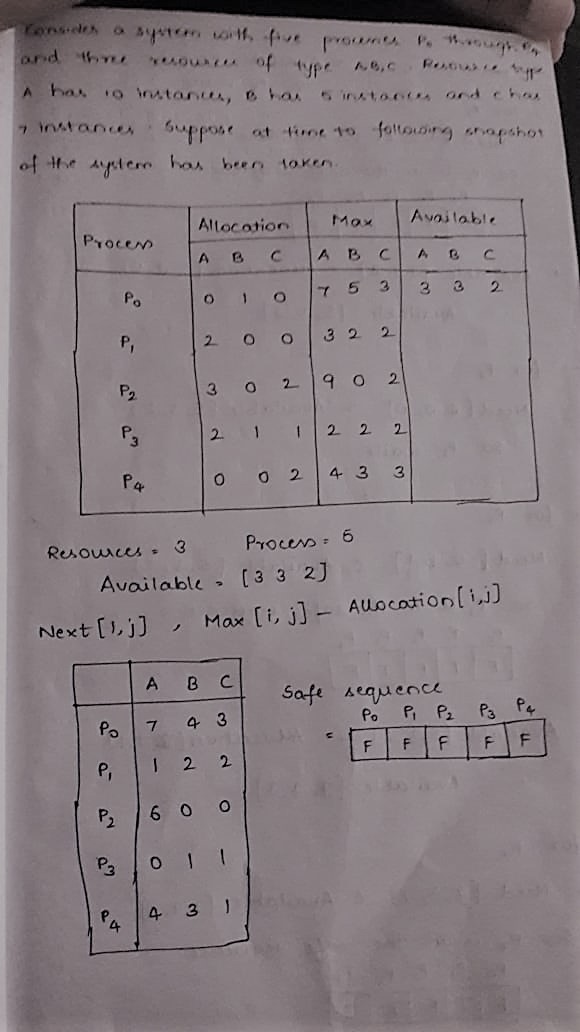 Consider a system with five processes P0 through P4
and three resources of type A,B,C. Resource type
A has 10 instances, B has 5 instances and C has
7 instances. Suppose at time t0 following snapshot
of the system has been taken.
Process Allocation Max Available
A B C A B C A B C
P0 0 1 0 7 5 3 3 3 2
P1 2 0 0 3 2 2
P2 3 0 2 9 0 2
P3 2 1 1 2 2 2
P4 0 0 2 4 3 3
Resources = 3 Process = 5
Available = [3 3 2]
Next [i,j] , Max [i,j] - Allocation [i,j]
A B C
P0 7 4 3
P1 1 2 2
P2 6 0 0
P3 0 1 1
P4 4 3 1
Safe sequence
P0 P1 P2 P3 P4
= F F F F F